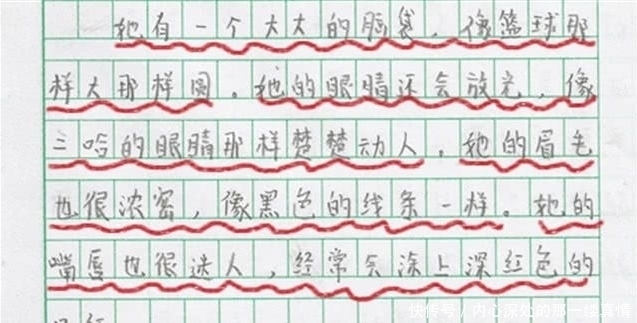 她有一个大大的脑袋，像篮球那
样大那样圆。她的眼睛还会放光，像
三哈的眼睛那样楚楚动人，她的眉毛
也很浓密，像黑色的线条一样。她的
嘴唇也很迷人，经常会涂上深红色的
快传号 / 内心深处的那一缕真情